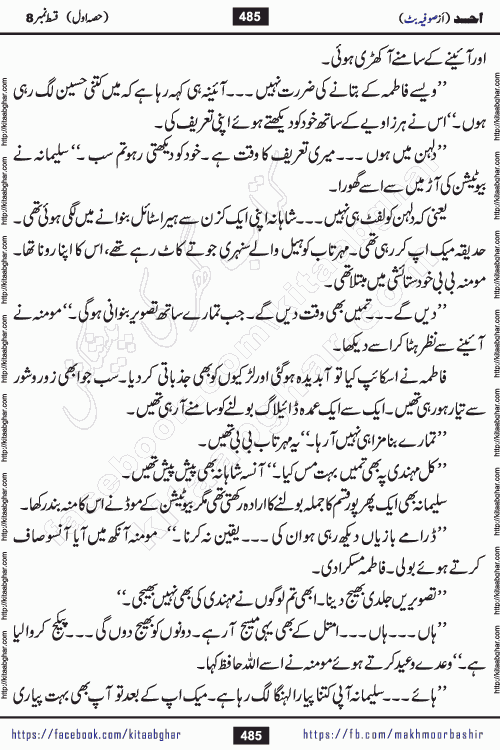 احد (از صوفیہ بٹ) 485 (حصہ اول) قسط نمبر 8
اور آئینے کے سامنے آ کھڑی ہوئی۔
”ویسے فاطمہ کے بتانے کی ضرورت نہیں ۔۔۔ آئینہ ہی کہہ رہا ہے کہ میں کتنی حسین لگ رہی
ہوں۔“ اس نے ہر زاویے کے ساتھ خود کو دیکھتے ہوئے اپنی تعریف کی۔
”دلہن میں ہوں ۔۔۔ میری تعریف کا وقت ہے۔ خود کو دیکھتی رہو تم سب ۔“ سلیمانہ نے
بیوٹیشن کی آڑ میں سے اسے گھورا۔
یعنی کہ دلہن کو لفٹ ہی نہیں ۔۔۔ شاہانہ اپنی ایک کزن سے ہیر اسٹائل بنوانے میں لگی ہوئی تھی۔
حدیقہ میک اپ کر رہی تھی۔ مہرتاب کو ہیل والے سنہری جوتے کاٹ رہے تھے، اس کا اپنا رونا تھا۔
مومنہ بی بی خود ستائشی میں مبتلا تھی۔
”دیں گے ۔۔۔ تمہیں بھی وقت دیں گے۔ جب تمہارے ساتھ تصویر بنوانی ہوگی۔“ مومنہ نے
آئینے سے نظر ہٹا کر اسے دیکھا۔
فاطمہ نے اسکائپ کیا تو آبدیدہ ہوگئی اور لڑکیوں کو بھی جذباتی کر دیا۔ سب جو ابھی زور و شور
سے تیار ہو رہی تھیں۔ ایک سے ایک عمدہ ڈائیلاگ بولنے کو سامنے آ رہی تھیں۔
”تمہارے بنا مزا ہی نہیں آ رہا۔“ یہ مہرتاب بی بی تھیں۔
”کل مہندی پہ بھی تمہیں بہت مس کیا۔“ آنسہ شاہانہ بھی پیش پیش تھیں۔
سلیمانہ بھی ایک بھرپور قسم کا جملہ بولنے کا ارادہ رکھتی تھی مگر بیوٹیشن کے موڈ نے اس کا منہ بند رکھا۔
”ڈرامے بازیاں دیکھ رہی ہو ان کی ۔۔۔ یقین نہ کرنا ۔“ مومنہ آنکھ میں آیا آنسو صاف
کرتے ہوئے بولی۔ فاطمہ مسکرا دی۔
”تصویریں جلدی بھیج دینا۔ ابھی تم لوگوں نے مہندی کی بھی نہیں بھیجی۔“
”ہاں ۔۔۔ ہاں ۔۔۔ امتل کے بھی یہی میسج آ رہے۔ دونوں کو بھیج دوں گی ۔۔۔ پیکج کروا لیا
ہے۔“ وعدے وعید کرتے ہوئے مومنہ نے اسے اللہ حافظ کہا۔
”ہائے ۔۔۔ سلیمانہ آپی کتنا پیارا لہنگا لگ رہا ہے۔ میک اپ کے بعد تو آپ بھی بہت پیاری
https://facebook.com/kitaabghar 485 https://fb.com/makhmoorbashir
http://kitaabghar.com